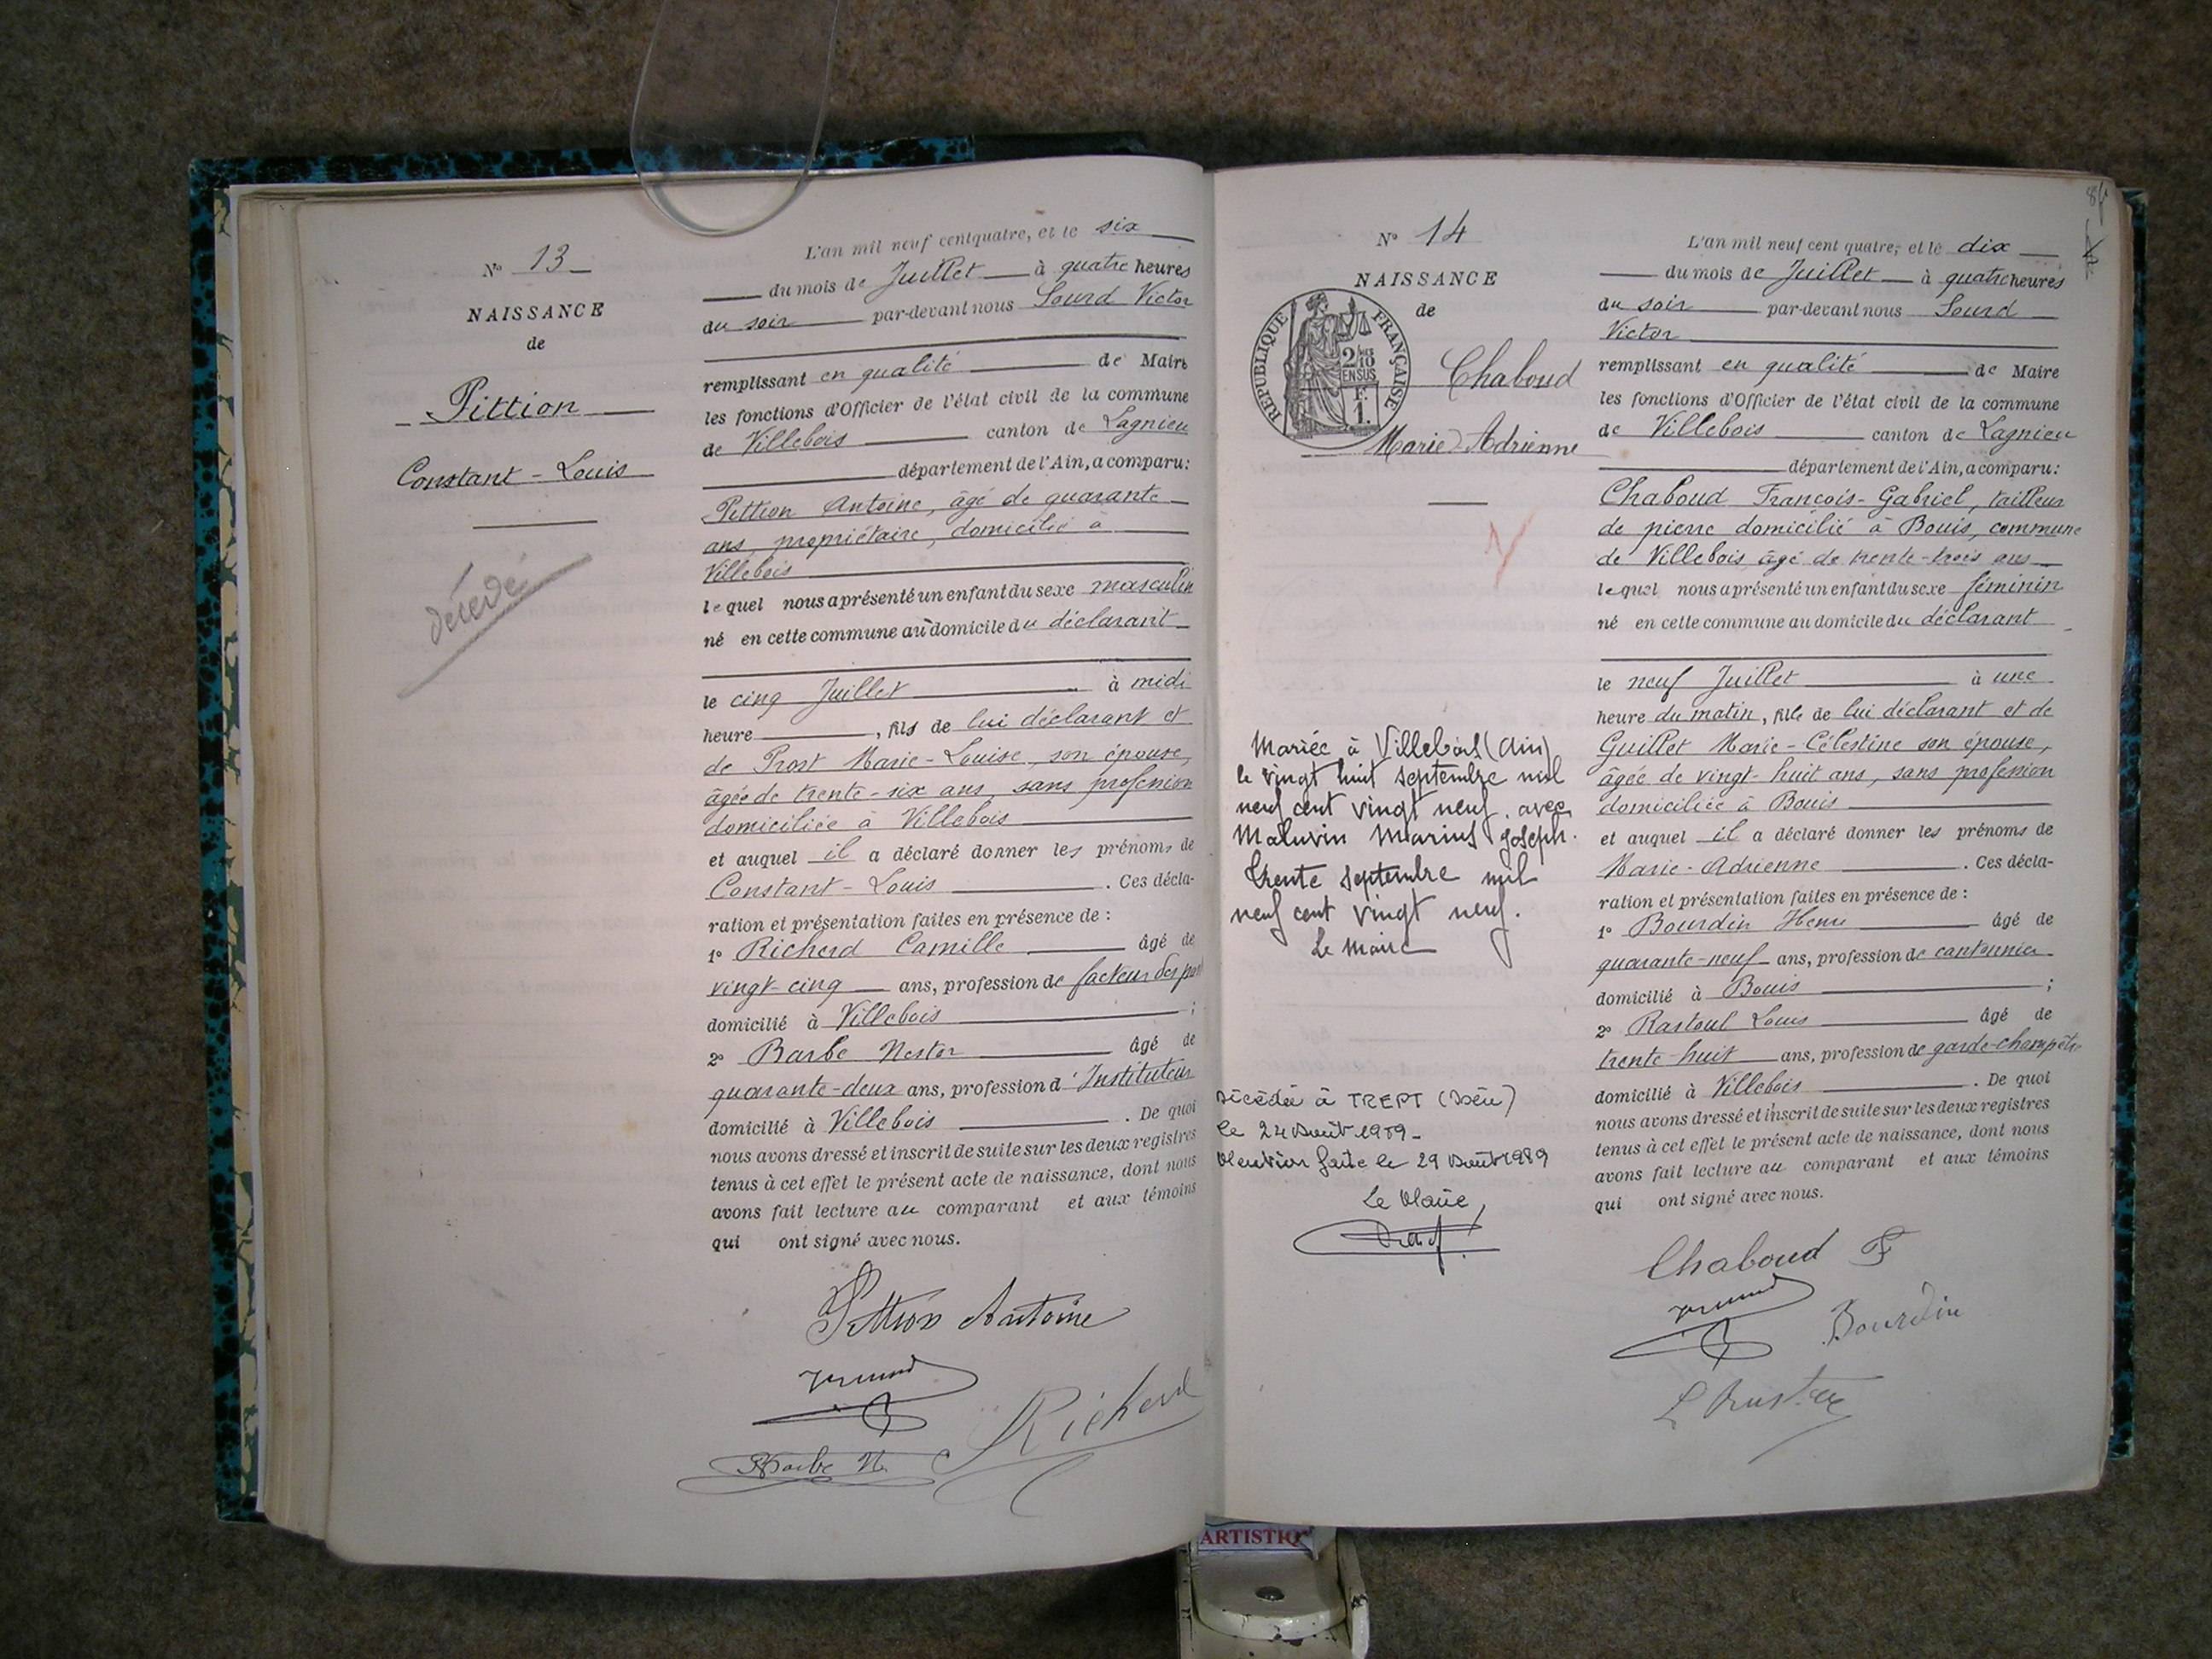 N° 13
NAISSANCE
de
Pittion
Constant-Louis
décédé
L'an mil neuf cent quatre, et le six
du mois de Juillet à quatre heures
du soir par-devant nous Sourd Victor
remplissant en qualité de Maire
les fonctions d'Officier de l'état civil de la commune
de Villebois canton de Lagnieu
département de l'Ain, a comparu:
Pittion Antoine, âgé de quarante
ans, propriétaire, domicilié à
Villebois
lequel nous a présenté un enfant du sexe masculin
né en cette commune au domicile du déclarant
le cinq Juillet à midi
heure, fils de lui déclarant et
de Prost Marie-Louise, son épouse,
âgée de trente-six ans, sans profession
domiciliée à Villebois
et auquel il a déclaré donner les prénoms de
Constant-Louis. Ces décla-
ration et présentation faites en présence de :
1° Richerd Camille âgé de
vingt-cinq ans, profession de facteur des
domicilié à Villebois ;
2° Barbe Nestor âgé de
quarante-deux ans, profession d'Instituteur
domicilié à Villebois. De quoi
nous avons dressé et inscrit de suite sur les deux registres
tenus à cet effet le présent acte de naissance, dont nous
avons fait lecture au comparant et aux témoins
qui ont signé avec nous.
Pittion Antoine
Richerd
Barbe N.
N° 14
NAISSANCE
de
REPUBLIQUE FRANÇAISE
2/10 EN SUS
1 F.
Chaboud
Marie-Adrienne
Mariée à Villebois (Ain)
le vingt huit septembre mil
neuf cent vingt neuf. avec
Maluvin Marius Joseph.
Trente septembre mil
neuf cent vingt neuf.
Le Maire
Décédée à TREPT (Isère)
le 24 Août 1989-
Mention faite le 29 Août 1989
Le Maire,
L'an mil neuf cent quatre, et le dix
du mois de Juillet à quatre heures
du soir par-devant nous Sourd
Victor
remplissant en qualité de Maire
les fonctions d'Officier de l'état civil de la commune
de Villebois canton de Lagnieu
département de l'Ain, a comparu:
Chaboud François-Gabriel, tailleur
de pierre domicilié à Bouis, commune
de Villebois âgé de trente-trois ans
lequel nous a présenté un enfant du sexe féminin
né en cette commune au domicile du déclarant
le neuf Juillet à une
heure du matin, fille de lui déclarant et de
Guillet Marie-Célestine son épouse,
âgée de vingt-huit ans, sans profession
domiciliée à Bouis
et auquel il a déclaré donner les prénoms de
Marie-Adrienne. Ces décla-
ration et présentation faites en présence de :
1° Bourdin Henri âgé de
quarante-neuf ans, profession de cantonnier
domicilié à Bouis ;
2° Rastoul Louis âgé de
trente-huit ans, profession de garde-champêtre
domicilié à Villebois. De quoi
nous avons dressé et inscrit de suite sur les deux registres
tenus à cet effet le présent acte de naissance, dont nous
avons fait lecture au comparant et aux témoins
qui ont signé avec nous.
Chaboud F
Bourdin
ARTISTIQ